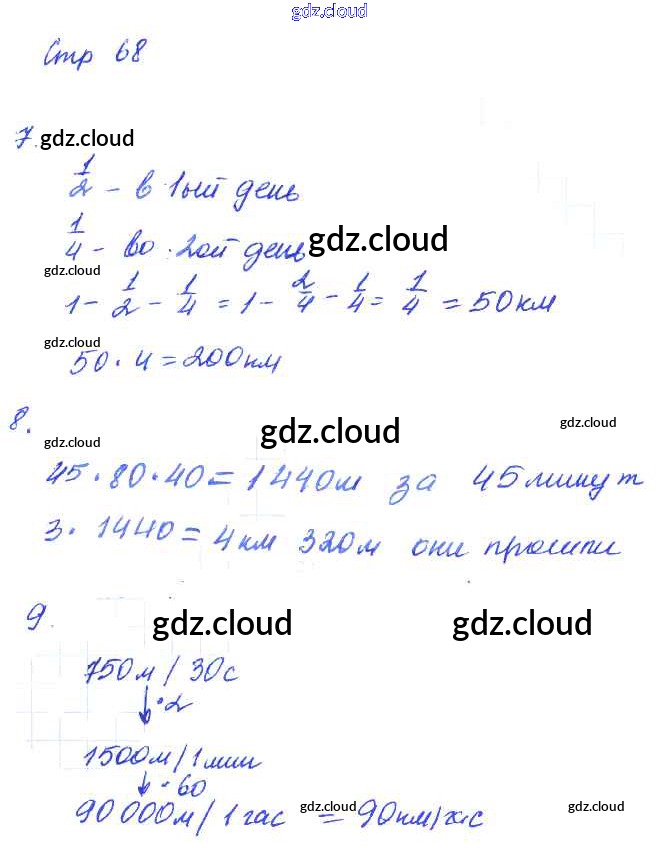 gdz.cloud
Стр 68
7. gdz.cloud
1/2 - в 1ый день
1/4 - во 2ой день gdz.cloud
gdz.cloud
1 - 1/2 - 1/4 = 1 - 2/4 - 1/4 = 1/4 = 50 км
gdz.cloud
50 · 4 = 200 км
8. gdz.cloud gdz.cloud
gdz.cloud
45 · 80 · 40 = 1440 м за 45 минут
3 · 1440 = 4 км 320 м они прошли
9. gdz.cloud gdz.cloud
750 м / 30 с
↓ · 2
1500 м / 1 мин
↓ · 60
90 000 м / 1 час gdz.cloud = 90 км/час gdz.cloud